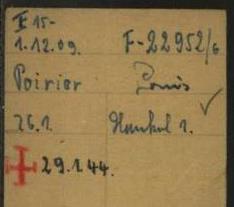 II 15-
1.12.09. F-22952/6
Poirier Louis
26.1. Heinkel 1.
29.1.44.